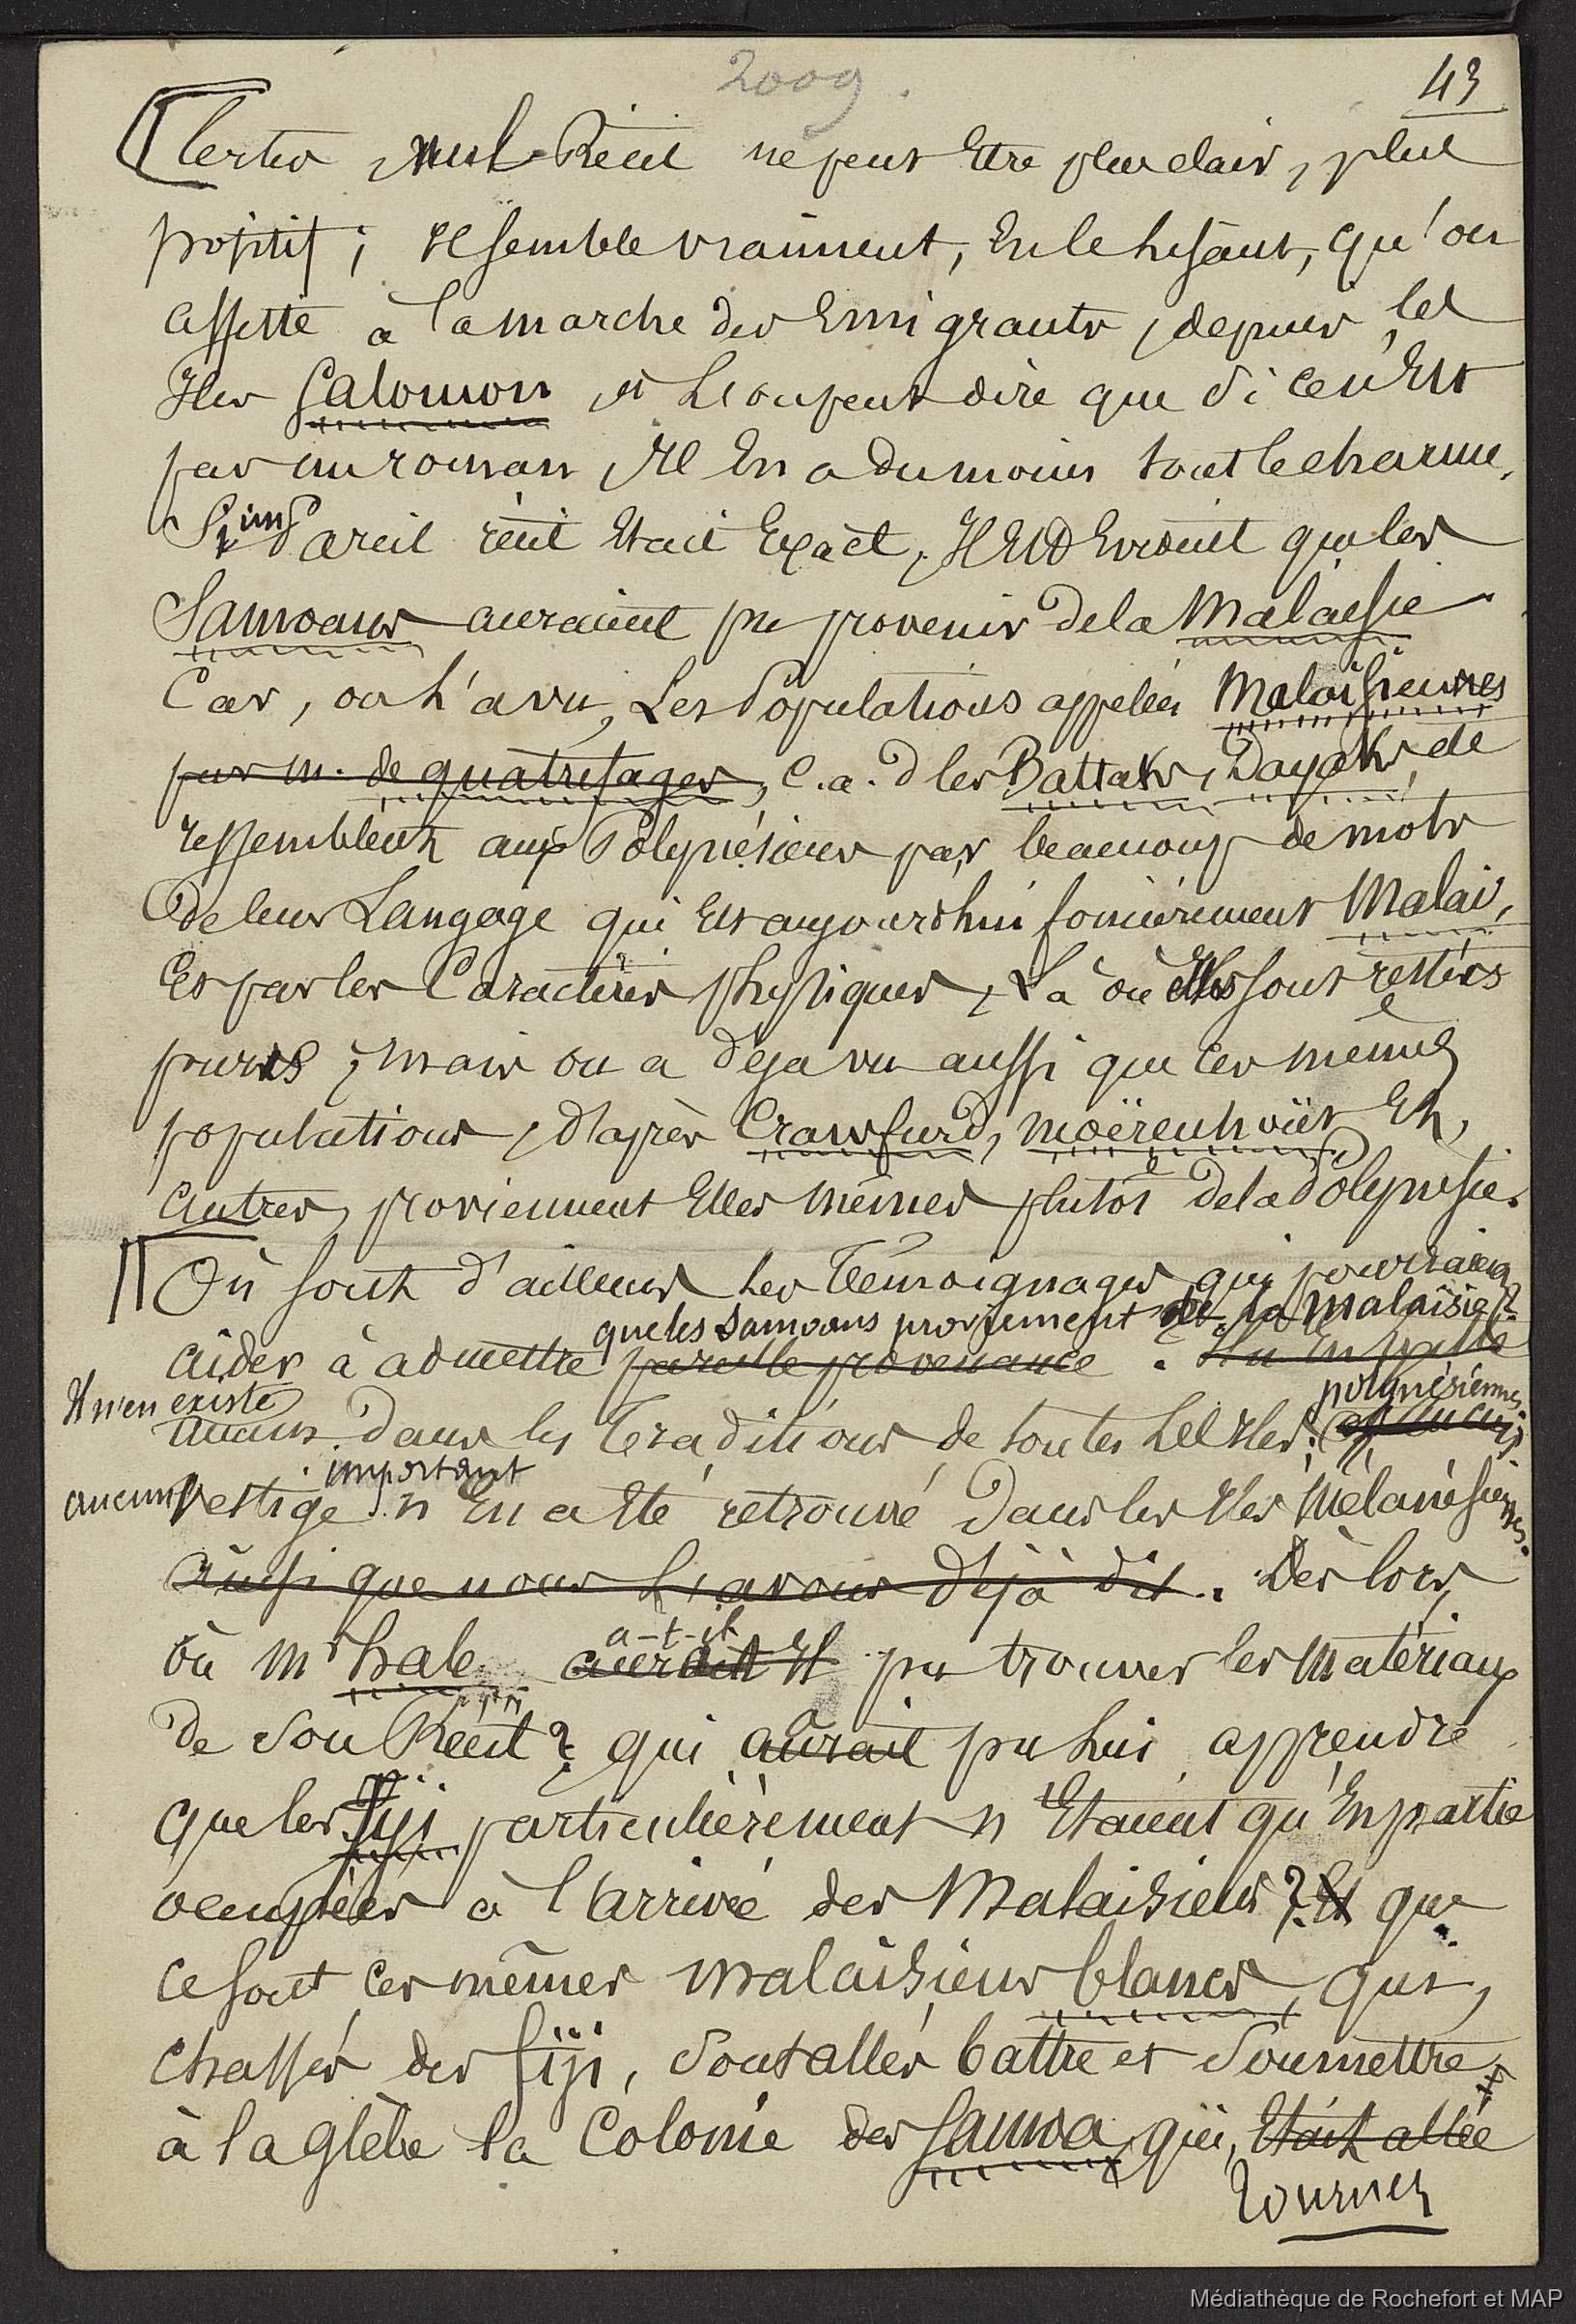 2009.
43
Certes, nul Récit ne peut Etre plus clair, plus
positif ; Il semble vraiment, En le lisant, qu'on
assiste à la marche des Emigrants, depuis les
Iles Salomon, et L'on peut dire que si ce n'Est
pas un roman, Il En a du moins tout le charme.
Si un Pareil récit Etait Exact, Il Est Evident que les
Samoans auraient pu provenir de la Malaisie.
Car, on l'a vu, Les Populations appelées Malaisiennes
par M. de quatrefages, C.a.d les Battaks, Dayaks, etc
ressemblent aux Polynésiens par beaucoup de mots
De leur Langage qui Est aujourd'hui foncièrement Malai,
Et par les Caractères physiques, Là où Elles sont restées
pures ; mais on a déja vu aussi que ces mêmes
populations, d'après Crawfurd, Moërenhoüt Et,
autres, proviennent Elles mêmes plutôt de la Polynésie.
Où sont d'ailleurs les Témoignages qui pourraient
que les Samoans proviennent de la Malaisie ?
aider à admettre pareille provenance.
Il n'en existe
polynésiennes ;
aucun Dans les Traditions de toutes Les Iles ;
important
aucun Vestige n'En a Eté retrouvé Dans les Iles Mélanésiennes.
Ainsi que nous L'avons déjà dit. Dès lors,
a-t-il
où Mr hale aurait Il pu trouver les Matériaux
de son Récit ? qui aurait pu lui apprendre
a
que les Fiji particulièrement n'Etaient qu'En partie
occupées à l'arrivée des Malaisiens ? Et que
ce sont ces mêmes Malaisiens blancs, qui,
chassés des Fiji, sont allés battre et soumettre
à la glèbe la Colonie des Samoa, qui, Etait allée
Tournez
Médiathèque de Rochefort et MAP